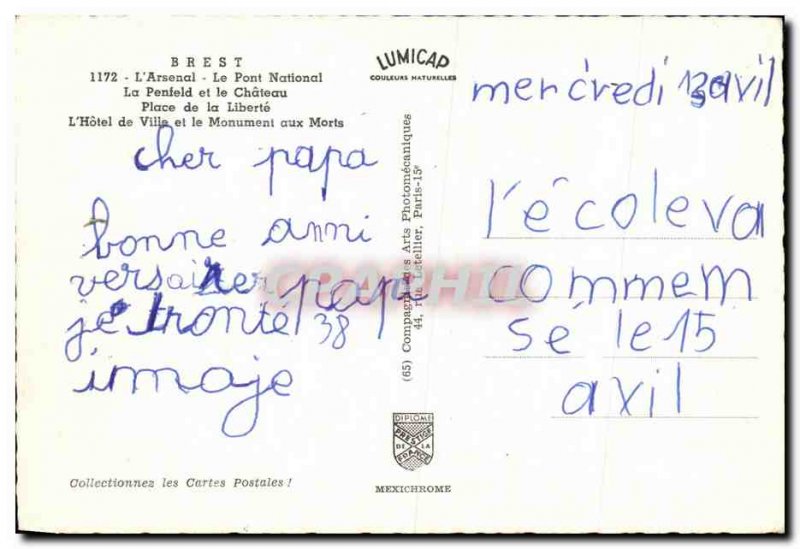 BREST
1172 - L'Arsenal - Le Pont National
La Penfeld et le Château
Place de la Liberté
L'Hôtel de Ville et le Monument aux Morts
cher papa
bonne anni
versairer papa
je tronté 38
imaje
Collectionnez les Cartes Postales !
LUMICAP
COULEURS NATURELLES
(65) Compagnie des Arts Photomécaniques
44, rue Letellier, Paris-15e
DIPLOME
PRESTIGE
DE LA
FRANCE
MEXICHROME
mercredi 13 avil
l'école va
commem
sé le 15
avil